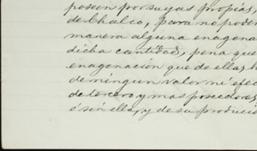 poseen por suyas propias,
de Chalco, para no poder
manera alguna enagena
dicha cantidad, pena que
enagenacion que de ellas h
de ningun valor ni efec
de tercero y mas poseedores
é sin ella, y de su produci